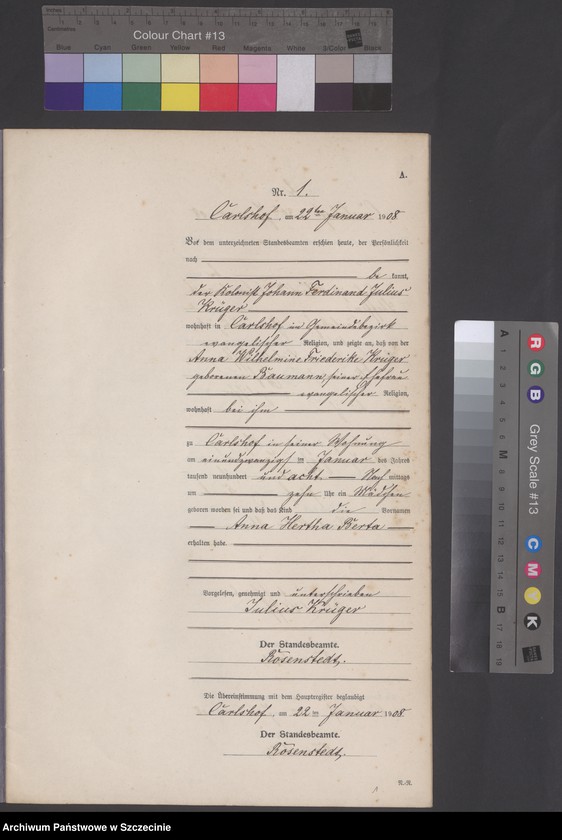 Colour Chart #13
Blue Cyan Green Yellow Red Magenta White 3/Color Black
A.
Nr. 1.
Carlshof, am 22ten Januar 1908
Vor dem unterzeichneten Standesbeamten erschien heute, der Persönlichkeit
nach
be kannt,
der Kolonist Johann Ferdinand Julius
Krüger
wohnhaft in Carlshof in Gemeindebezirk
evangelischer Religion, und zeigte an, daß von der
Anna Wilhelmine Friederike Krüger
geborenen Baumann, seiner Ehefrau
evangelischer Religion,
wohnhaft bei ihm
zu Carlshof in seiner Wohnung
am einundzwanzigsten Januar des Jahres
tausend neunhundert und acht Nach mittags
um zehn Uhr ein Mädchen
geboren worden sei und daß das Kind die Vornamen
Anna Hertha Berta
erhalten habe.
Vorgelesen, genehmigt und unterschrieben
Julius Krüger
Der Standesbeamte.
Rosenstedt.
Die Übereinstimmung mit dem Hauptregister beglaubigt
Carlshof, am 22ten Januar 1908.
Der Standesbeamte.
Rosenstedt.
R G B
Grey Scale #13
C M Y K
A M B
Archiwum Państwowe w Szczecinie